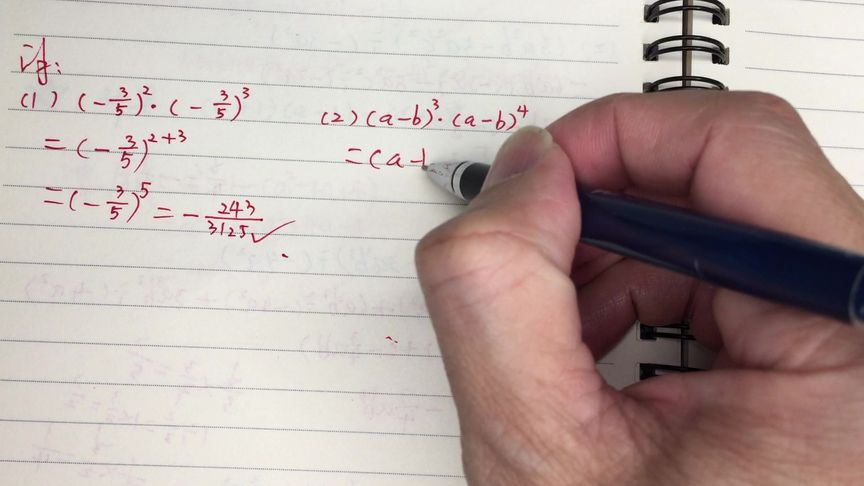 (1) (-3/5)²·(-3/5)³
=(-3/5)²⁺³
=(-3/5)⁵ = -243/3125 ✓
(2) (a-b)³·(a-b)⁴
=(a-